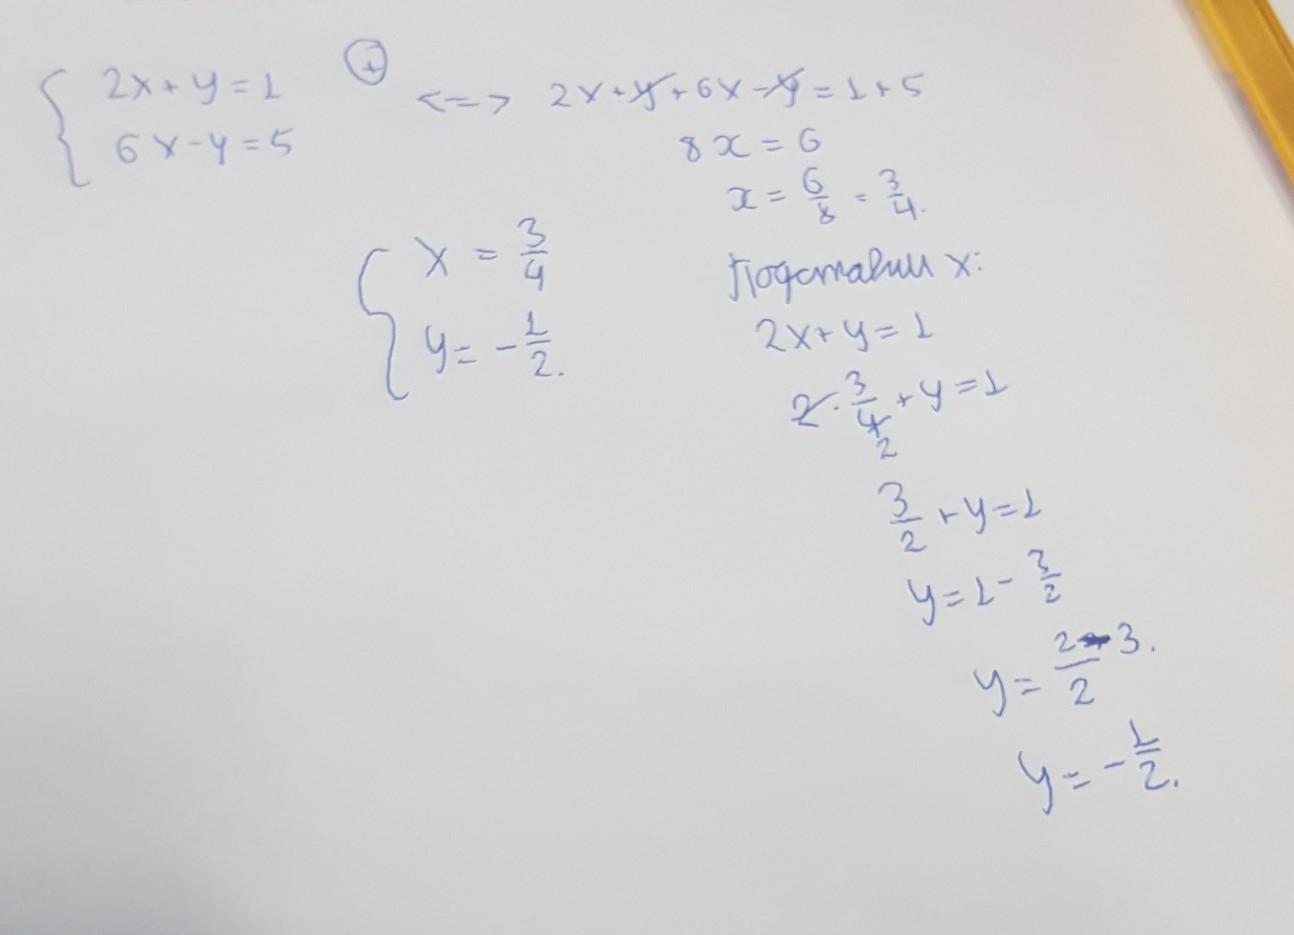 { 2x + y = 1 (+) <=> 2x + y + 6x - y = 1 + 5
6x - y = 5
8x = 6
x = 6/8 = 3/4.
Подставим x:
2x + y = 1
2 · 3/4 + y = 1
2
3/2 + y = 1
y = 1 - 3/2
y = 2-3/2.
y = -1/2.
{ x = 3/4
y = -1/2.